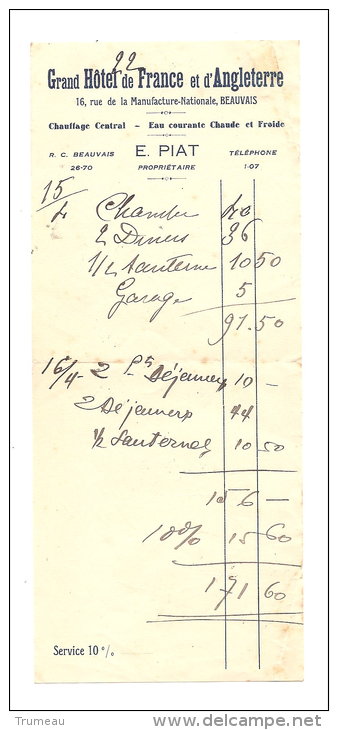 22
Grand Hôtel de France et d'Angleterre
16, rue de la Manufacture-Nationale, BEAUVAIS
Chauffage Central - Eau courante Chaude et Froide
R. C. BEAUVAIS E. PIAT TÉLÉPHONE
26-70 PROPRIÉTAIRE 1-07
15/4 Chambre 40
2 Diners 36
1/2 Sauterne 10 50
Garage 5
91.50
16/4 - 2 Pts Déjeuners 10 -
2 Déjeuners 44
1/2 Sauternes 10 50
156 -
10% 15 60
171 60
Service 10 %
Trumeau
www.delcampe.net